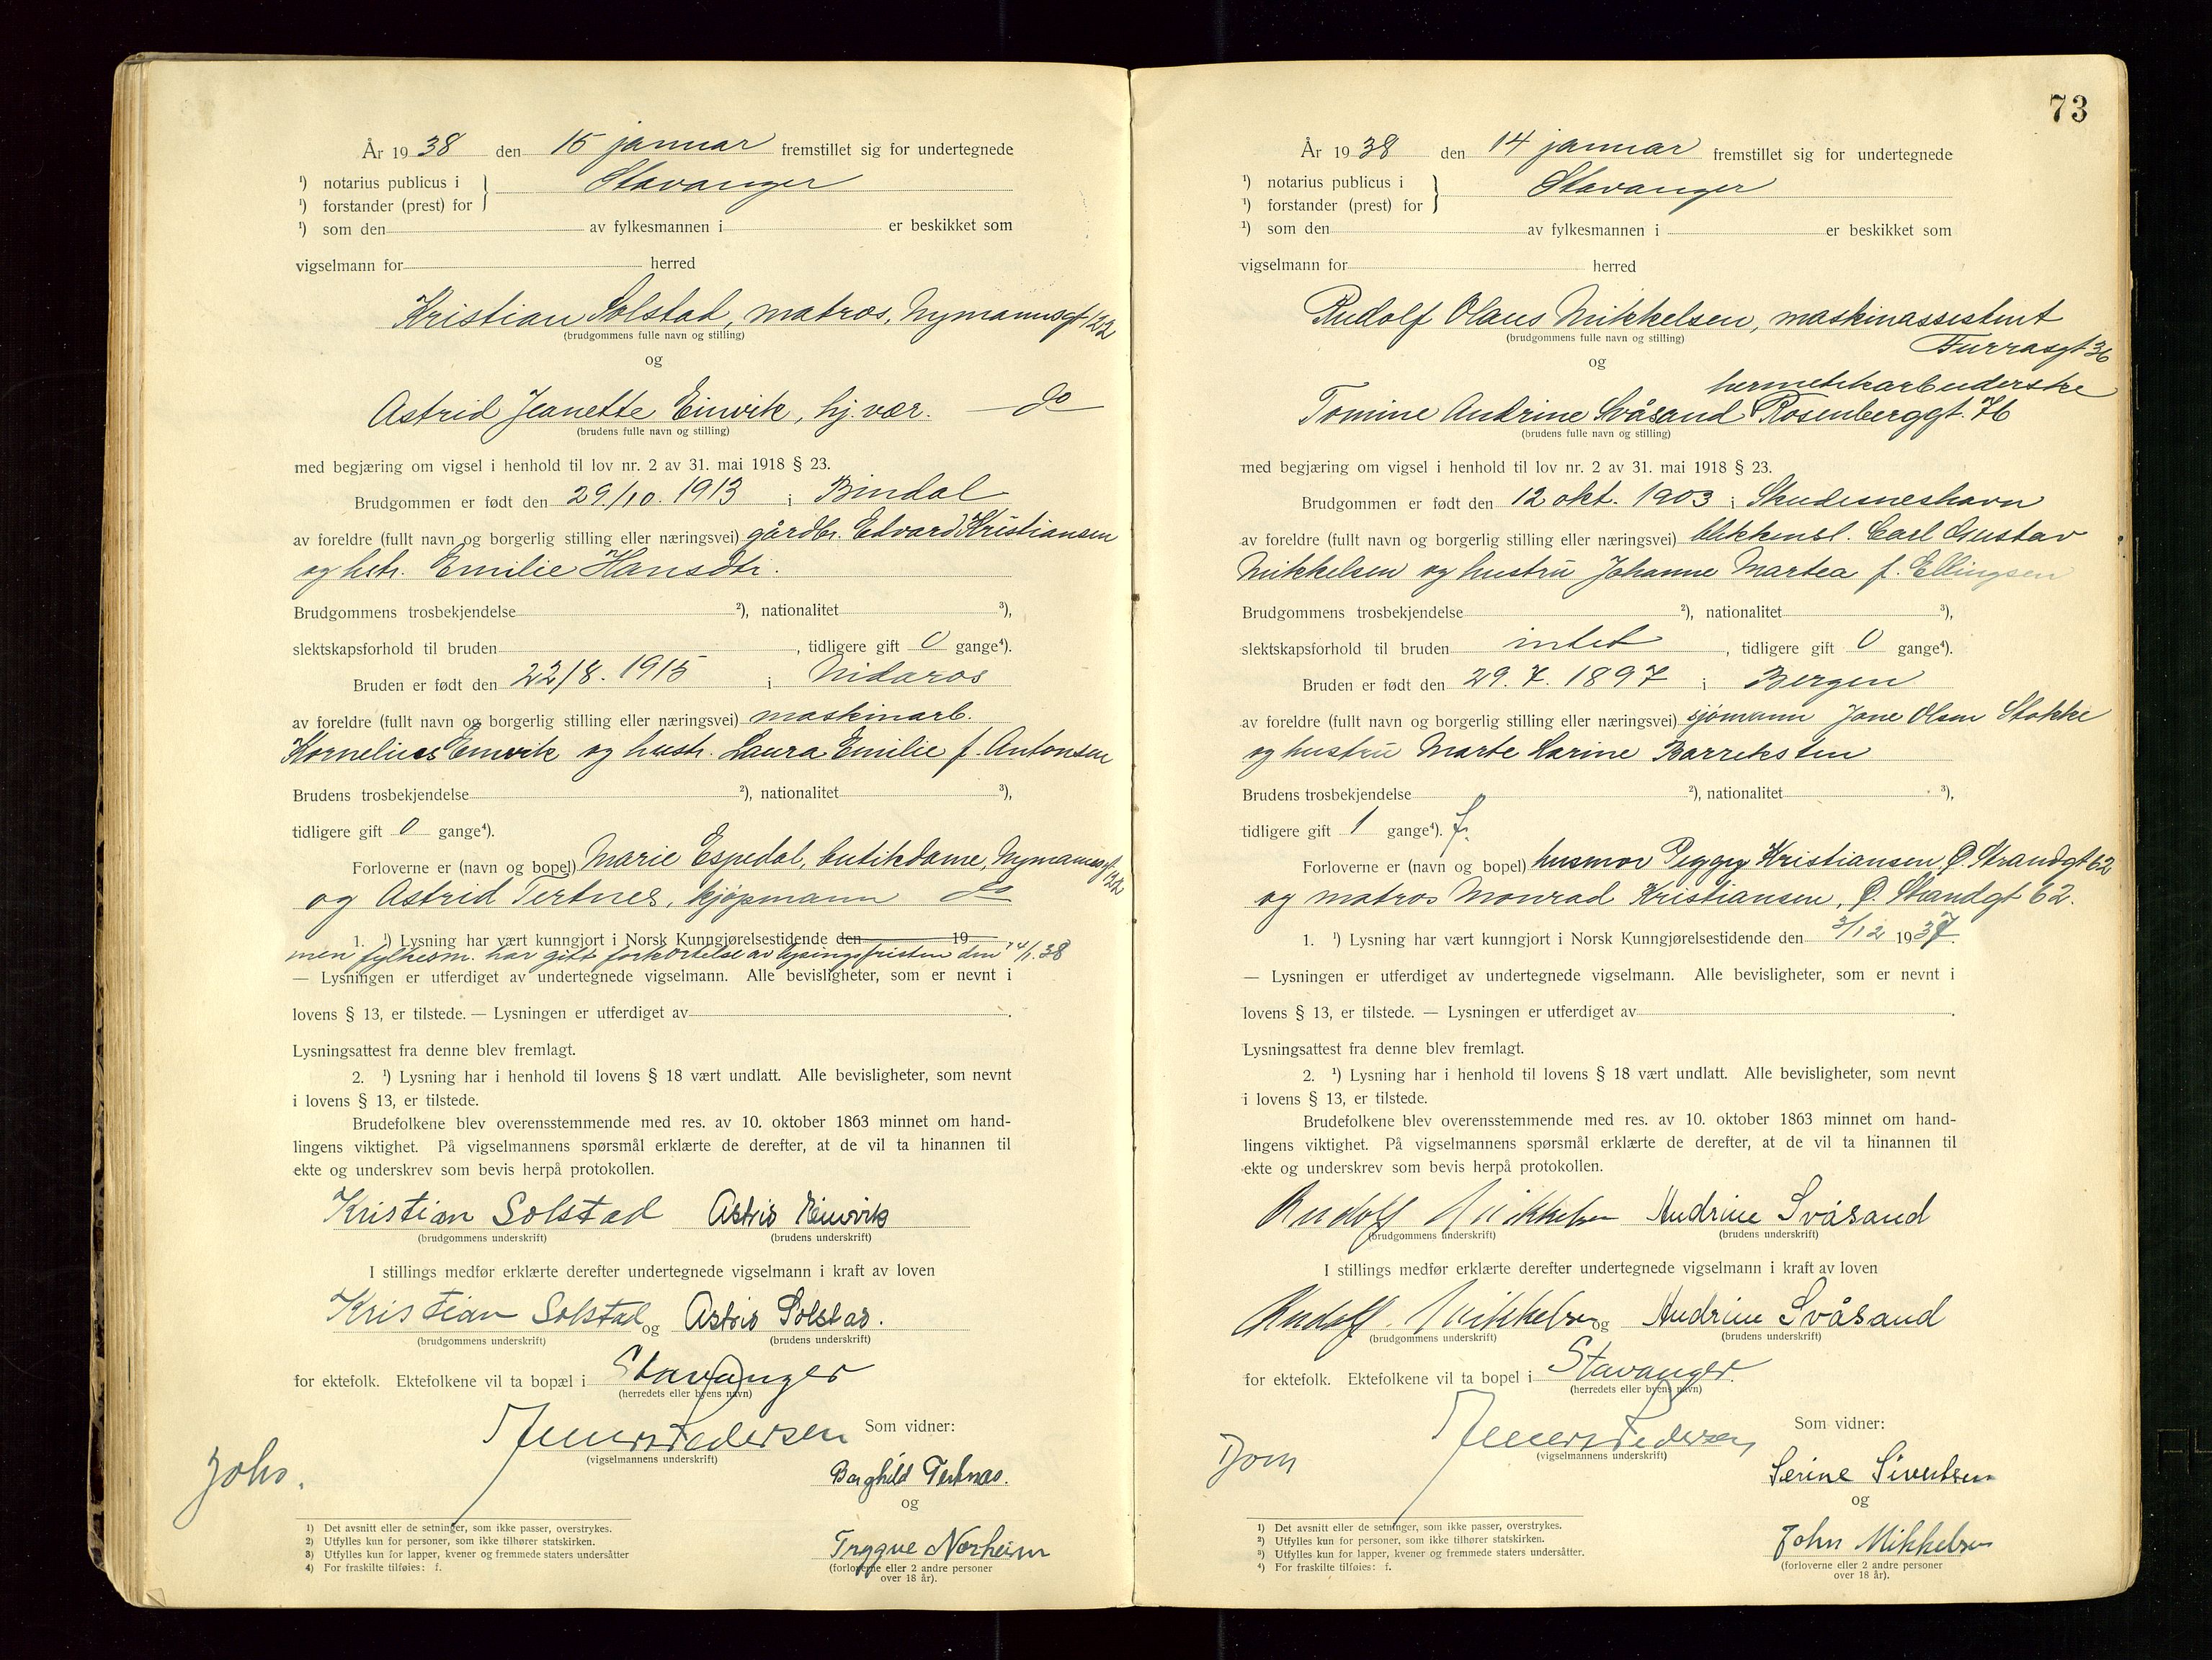 År 1938 den 15 januar fremstillet sig for undertegnede
¹) notarius publicus i } Stavanger
¹) forstander (prest) for
¹) som den av fylkesmannen i er beskikket som
vigselmann for herred
Kristian Solstad, matros, Nymannsgt 122
(brudgommens fulle navn og stilling)
og
Astrid Jeanette Einvik, hj. vær. — do
(brudens fulle navn og stilling)
med begjæring om vigsel i henhold til lov nr. 2 av 31. mai 1918 § 23.
Brudgommen er født den 29/10. 1913 i Bindal
av foreldre (fullt navn og borgerlig stilling eller næringsvei) gårdbr. Edvard Kristiansen
og hstr. Emilie Hansdtr.
Brudgommens trosbekjendelse ²), nationalitet ³),
slektskapsforhold til bruden , tidligere gift 0 gange⁴).
Bruden er født den 22/8. 1915 i Nidaros
av foreldre (fullt navn og borgerlig stilling eller næringsvei) maskinarb.
Kornelius Einvik og hustr. Laura Emilie f. Antonsen
Brudens trosbekjendelse ²), nationalitet ³),
tidligere gift 0 gange⁴).
Forloverne er (navn og bopel) Marie Espedal, butikdame, Nymannsgt. 122
og Astrid Tertnes, kjøpmann do
1. ¹) Lysning har vært kunngjort i Norsk Kunngjørelsestidende den 19
men fylkesm. har gitt forkortelse av lysingsfristen den 14/1.38
— Lysningen er utferdiget av undertegnede vigselmann. Alle bevisligheter, som er nevnt i
lovens § 13, er tilstede. — Lysningen er utferdiget av .
Lysningsattest fra denne blev fremlagt.
2. ¹) Lysning har i henhold til lovens § 18 vært undlatt. Alle bevisligheter, som nevnt
i lovens § 13, er tilstede.
Brudefolkene blev overensstemmende med res. av 10. oktober 1863 minnet om hand-
lingens viktighet. På vigselmannens spørsmål erklærte de derefter, at de vil ta hinannen til
ekte og underskrev som bevis herpå protokollen.
Kristian Solstad Astrid Einvik
(brudgommens underskrift) (brudens underskrift)
I stillings medfør erklærte derefter undertegnede vigselmann i kraft av loven
Kristian Solstad og Astrid Solstad.
(brudgommens underskrift) (brudens underskrift)
for ektefolk. Ektefolkene vil ta bopæl i Stavanger
(herredets eller byens navn)
Som vidner:
(vigselmannens underskrift)
Borghild Tertnæs.
Johs.
og
Trygve Norheim
(forloverne eller 2 andre personer
over 18 år).
1) Det avsnitt eller de setninger, som ikke passer, overstrykes.
2) Utfylles kun for personer, som ikke tilhører statskirken.
3) Utfylles kun for lapper, kvener og fremmede staters undersåtter
4) For fraskilte tilføies: f.
73
År 1938 den 14 januar fremstillet sig for undertegnede
¹) notarius publicus i } Stavanger
¹) forstander (prest) for
¹) som den av fylkesmannen i er beskikket som
vigselmann for herred
Rudolf Olaus Mikkelsen, maskinassistent
(brudgommens fulle navn og stilling)
Furrasgt 36
og
hermetikkarbeiderske
Tomine Andrine Svåsand Rosenberggt. 76
(brudens fulle navn og stilling)
med begjæring om vigsel i henhold til lov nr. 2 av 31. mai 1918 § 23.
Brudgommen er født den 12 okt. 1903 i Skudesneshavn
av foreldre (fullt navn og borgerlig stilling eller næringsvei) blikkensl. Carl Gustav
Mikkelsen og hustru Johanne Martea f. Ellingsen
Brudgommens trosbekjendelse ²), nationalitet ³),
slektskapsforhold til bruden intet , tidligere gift 0 gange⁴).
Bruden er født den 29. 7. 1897 i Bergen
av foreldre (fullt navn og borgerlig stilling eller næringsvei) sjømann Jone Olsen Stokke
og hustru Marte Karine Barreksten
Brudens trosbekjendelse ²), nationalitet ³),
tidligere gift 1 gange⁴). f.
Forloverne er (navn og bopel) husmor Peggy Kristiansen, Ø. Strandgt 62
og matros Monrad Kristiansen, Ø. Standgt 62.
1. ¹) Lysning har vært kunngjort i Norsk Kunngjørelsestidende den 3/12 1937.
— Lysningen er utferdiget av undertegnede vigselmann. Alle bevisligheter, som er nevnt i
lovens § 13, er tilstede. — Lysningen er utferdiget av .
Lysningsattest fra denne blev fremlagt.
2. ¹) Lysning har i henhold til lovens § 18 vært undlatt. Alle bevisligheter, som nevnt
i lovens § 13, er tilstede.
Brudefolkene blev overensstemmende med res. av 10. oktober 1863 minnet om hand-
lingens viktighet. På vigselmannens spørsmål erklærte de derefter, at de vil ta hinannen til
ekte og underskrev som bevis herpå protokollen.
Rudolf Mikkelsen Andrine Svåsand
(brudgommens underskrift) (brudens underskrift)
I stillings medfør erklærte derefter undertegnede vigselmann i kraft av loven
Rudolf Mikkelsen og Andrine Svåsand
(brudgommens underskrift) (brudens underskrift)
for ektefolk. Ektefolkene vil ta bopel i Stavanger.
(herredets eller byens navn)
Som vidner:
(vigselmannens underskrift)
Serine Sivertsen
og
John Mikkelsen
(forloverne eller 2 andre personer
over 18 år).
1) Det avsnitt eller de setninger, som ikke passer, overstrykes.
2) Utfylles kun for personer, som ikke tilhører statskirken.
3) Utfylles kun for lapper, kvener og fremmede staters undersåtter.
4) For fraskilte tilføies: f.